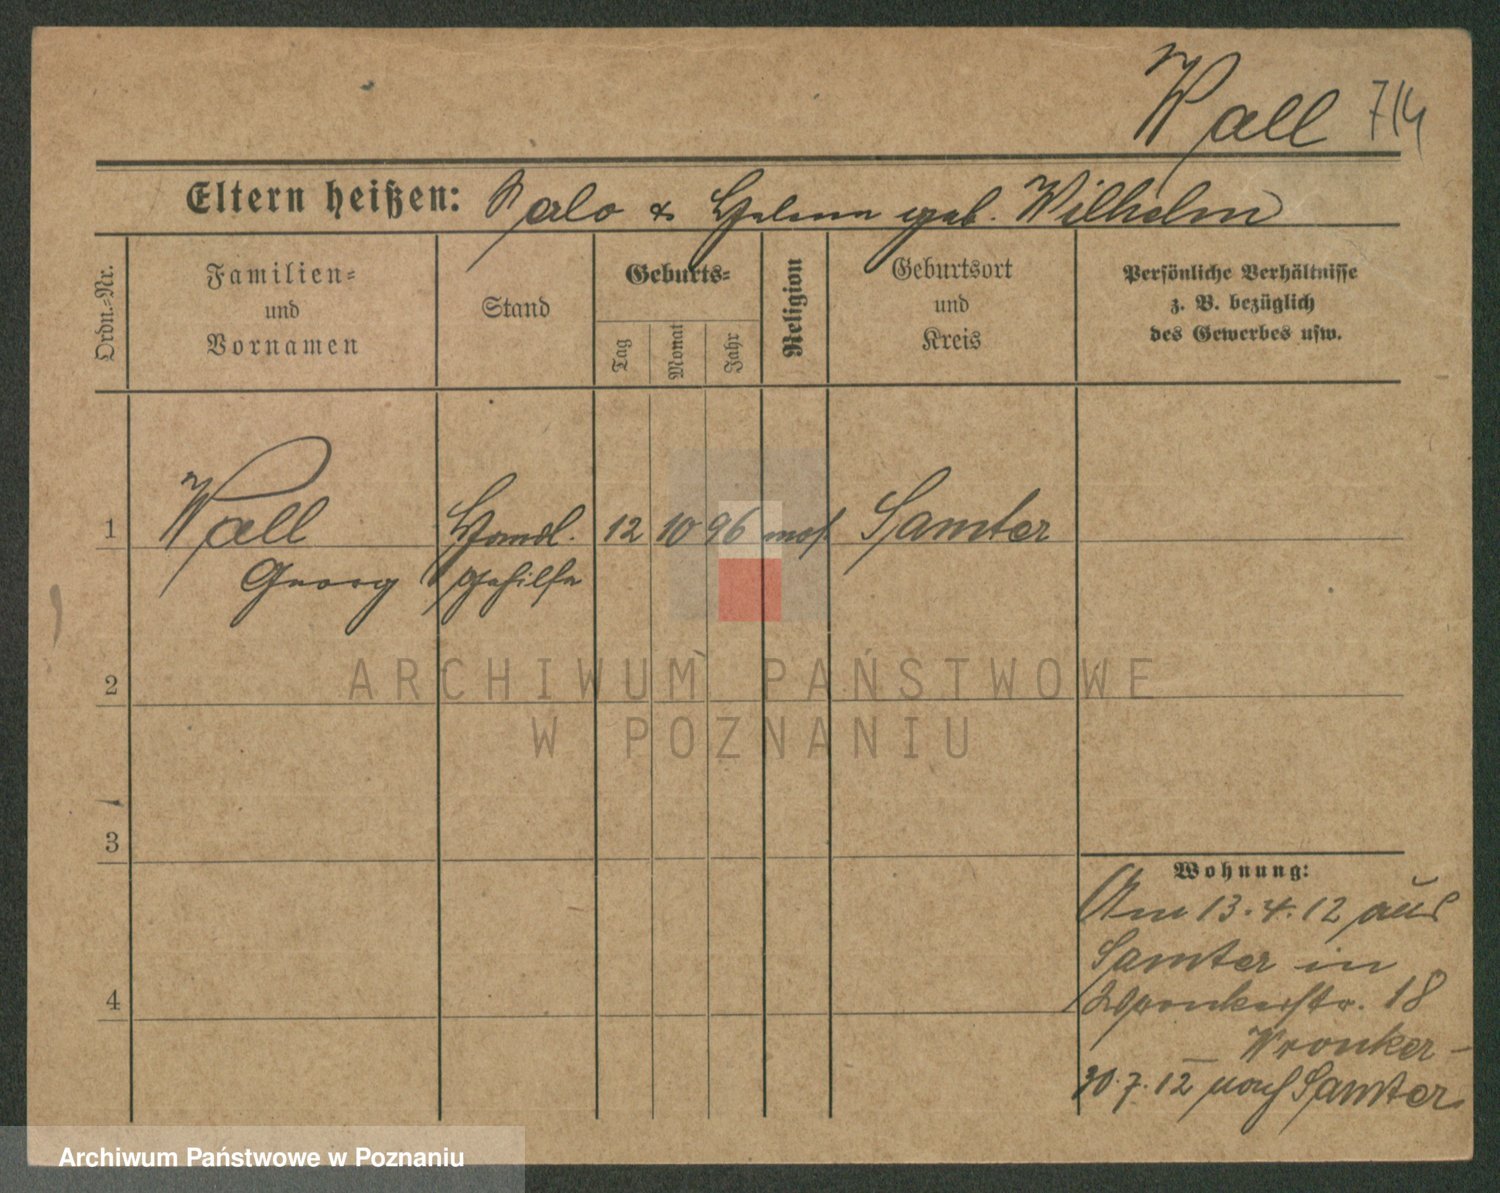 Wall 714
Eltern heißen: Salo & Helene geb. Wilhelm
Ordn.-Nr.
Familien-
und
Vornamen
Stand
Geburts-
Tag
Monat
Jahr
Religion
Geburtsort
und
Kreis
Persönliche Verhältnisse
z. B. bezüglich
des Gewerbes usw.
1 Wall Handl. 12 10 96 mos Samter
Georg gehilfe
ARCHIWUM PAŃSTWOWE
W POZNANIU
2
3
4
Wohnung:
Am 13.4.12 aus
Samter in
Wronkerstr. 18
Wronker-
30.7.12 nach Samter
Archiwum Państwowe w Poznaniu